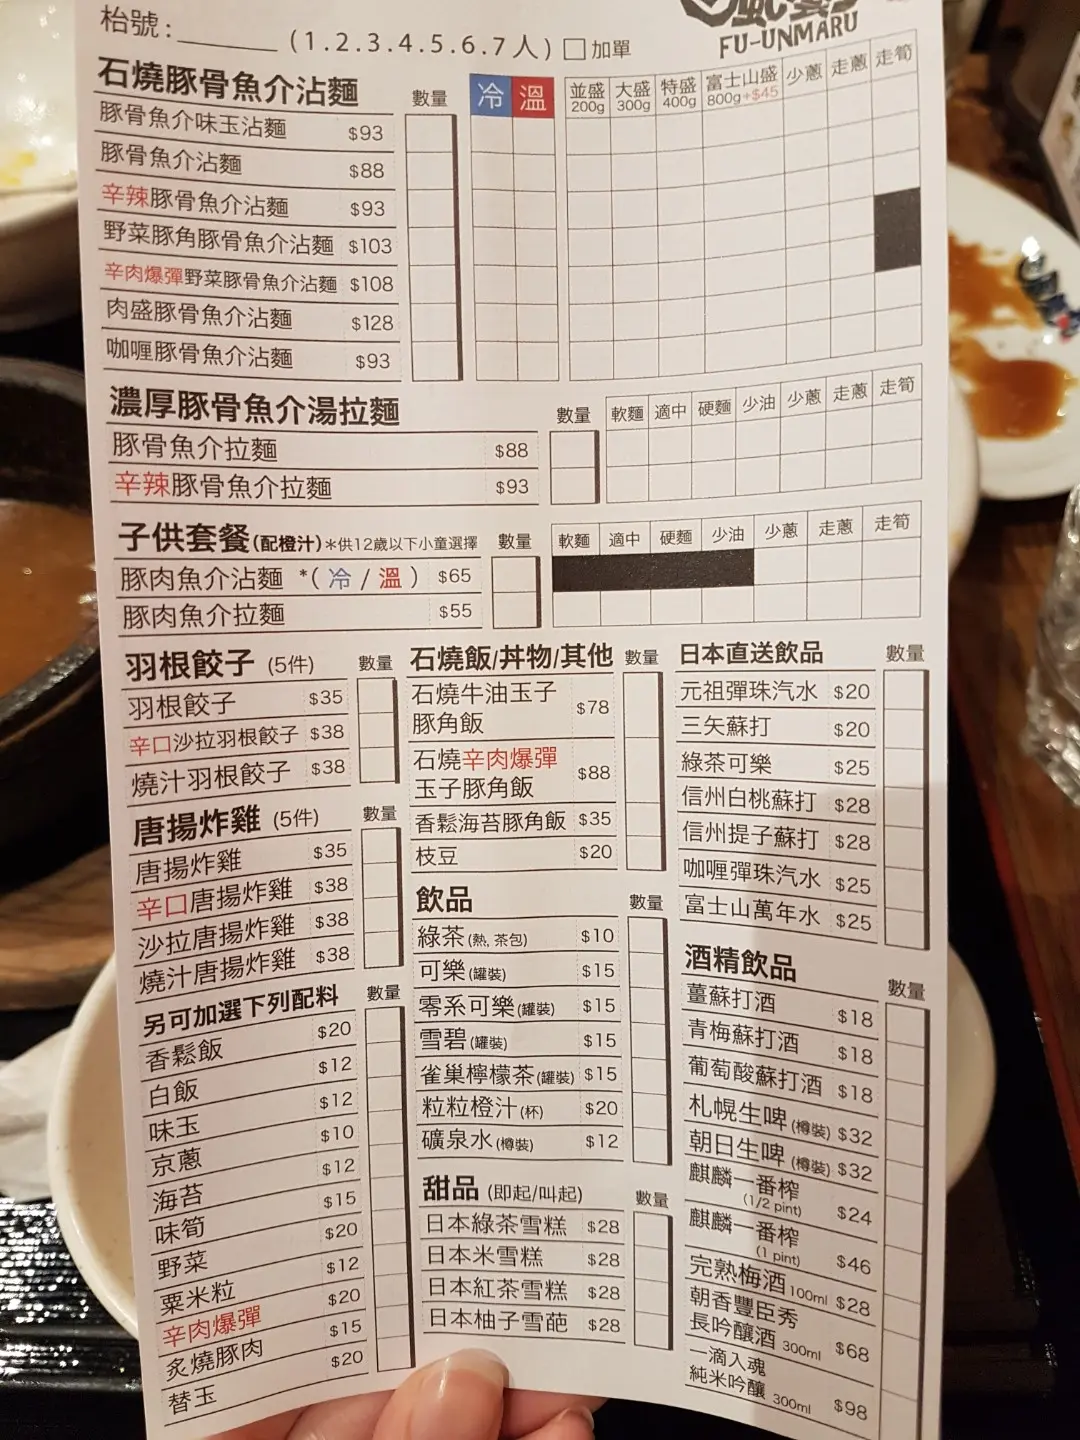 枱號: (1.2.3.4.5.6.7人) 加單
FU-UNMARU
石燒豚骨魚介沾麵 數量 冷 溫 並盛 200g 大盛 300g 特盛 400g 富士山盛 800g+$45 少蔥 走蔥 走筍
豚骨魚介味玉沾麵 $93
豚骨魚介沾麵 $88
辛辣豚骨魚介沾麵 $93
野菜豚角豚骨魚介沾麵 $103
辛肉爆彈野菜豚骨魚介沾麵 $108
肉盛豚骨魚介沾麵 $128
咖喱豚骨魚介沾麵 $93
濃厚豚骨魚介湯拉麵 數量 軟麵 適中 硬麵 少油 少蔥 走蔥 走筍
豚骨魚介拉麵 $88
辛辣豚骨魚介拉麵 $93
子供套餐(配橙汁)*供12歲以下小童選擇 數量 軟麵 適中 硬麵 少油 少蔥 走蔥 走筍
豚肉魚介沾麵 *(冷/溫) $65
豚肉魚介拉麵 $55
羽根餃子 (5件) 數量
羽根餃子 $35
辛口沙拉羽根餃子 $38
燒汁羽根餃子 $38
唐揚炸雞 (5件) 數量
唐揚炸雞 $35
辛口唐揚炸雞 $38
沙拉唐揚炸雞 $38
燒汁唐揚炸雞 $38
另可加選下列配料 數量
香鬆飯 $20
白飯 $12
味玉 $12
京蔥 $10
海苔 $12
味筍 $15
野菜 $20
粟米粒 $12
辛肉爆彈 $20
炙燒豚肉 $15
替玉 $20
石燒飯/丼物/其他 數量
石燒牛油玉子
豚角飯 $78
石燒辛肉爆彈
玉子豚角飯 $88
香鬆海苔豚角飯 $35
枝豆 $20
飲品 數量
綠茶(熱, 茶包) $10
可樂(罐裝) $15
零系可樂(罐裝) $15
雪碧(罐裝) $15
雀巢檸檬茶(罐裝) $15
粒粒橙汁(杯) $20
礦泉水(樽裝) $12
甜品 (即起/叫起) 數量
日本綠茶雪糕 $28
日本米雪糕 $28
日本紅茶雪糕 $28
日本柚子雪葩 $28
日本直送飲品 數量
元祖彈珠汽水 $20
三矢蘇打 $20
綠茶可樂 $25
信州白桃蘇打 $28
信州提子蘇打 $28
咖喱彈珠汽水 $25
富士山萬年水 $25
酒精飲品 數量
薑蘇打酒 $18
青梅蘇打酒 $18
葡萄酸蘇打酒 $18
札幌生啤 (樽裝) $32
朝日生啤 (樽裝) $32
麒麟一番榨
(1/2 pint) $24
麒麟一番榨
(1 pint) $46
完熟梅酒 100ml $28
朝香豐臣秀
長吟釀酒 300ml $68
一滴入魂
純米吟釀 300ml $98